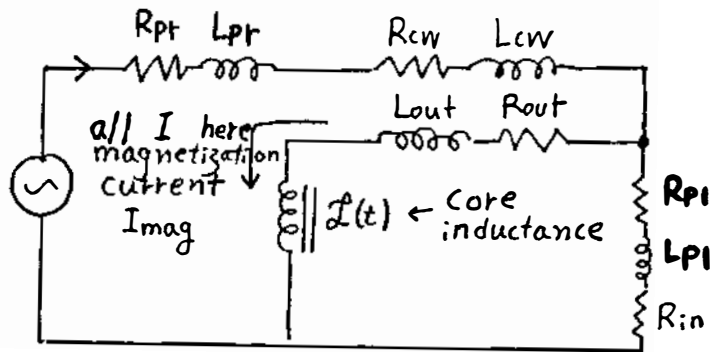 Rpr Lpr
Rcw Lcw
Lout Rout
all I here
magnetization
current
Imag
ℒ(t) ← core
inductance
Rpl
Lpl
Rin